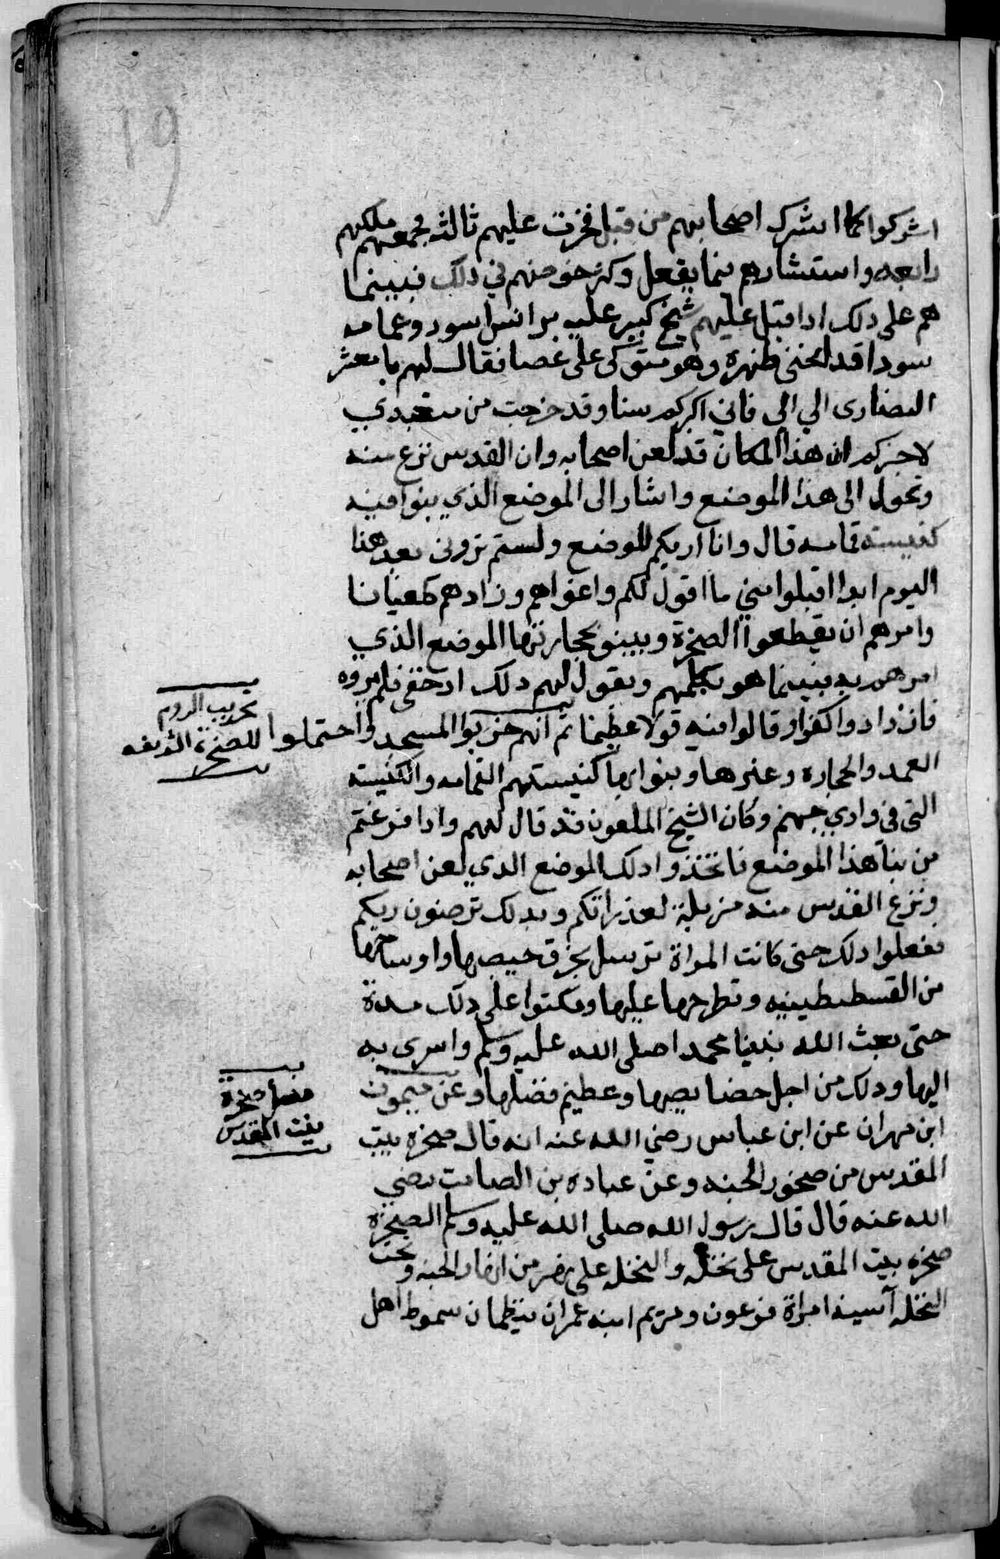 19
اشركوا كما اشرك اصحابهم من قبل فخرت عليهم ثالثه فجمعهم ملكهم
رابعه واستشارهم فيما يفعل وكثر خوضهم في ذلك فبينما
هم على ذلك اذا اقبل عليهم شيخ كبير عليه برانس سود وعمامه
سودا قد انحنى ظهره وهو متوكى على عصا فقال لهم يا معشر
النصارى الي الي فاني اكبركم سنا وقد خرجت من متعبدي
لاخبركم ان هذا المكان قد لعن اصحابه وان القدس نزع منه
وتحول الى هذا الموضع واشار الى الموضع الذي بنوا فيه
كنيسة قمامه قال وانا اريكم الموضع ولستم تروني بعد هذا
اليوم ابدا اقبلوا مني ما اقول لكم واغواهم وزادهم طغيانا
وامرهم ان يقطعوا الصخرة ويبنو بحجارتها الموضع الذي
امرهم به فبينما هو يكلمهم ويقول لهم ذلك اذ خفى فلم يروه
فازدادوا كفرا وقالوا فيه قولا عظيما ثم انهم خربوا المسجد واحتملوا
تخريب الروم
للصخرة الشريفه
العمد والحجاره وغيرها وبنوا بها كنيستهم القمامه والكنيسه
التي في وادي جهنم وكان الشيخ الملعون قد قال لهم واذا فرغتم
من بنا هذا الموضع فاتخذوا ذلك الموضع الذي لعن اصحابه
ونزع القدس منه مزبلة لعذراتكم وبذلك ترضون ربكم
ففعلوا ذلك حتى كانت المراة ترسل بخرق حيضها واوساخها
من القسطنطينيه وتطرحها عليها ومكثوا على ذلك مدة
حتى بعث الله نبينا محمدا صلى الله عليه وسلم واسرى به
اليها وذلك من اجل خصايصها وعظيم فضلها وعن ميمون
فضل صخرة
بيت المقدس
ابن مهران عن ابن عباس رضي الله عنه انه قال صخرة بيت
المقدس من صخور الجنه وعن عباده بن الصامت رضي
الله عنه قال قال رسول الله صلى الله عليه وسلم الصخرة
صخرة بيت المقدس على نخله والنخله على نهر من انهار الجنه وتحت
النخله آسيه امراة فرعون ومريم ابنه عمران ينظمان سموط اهل